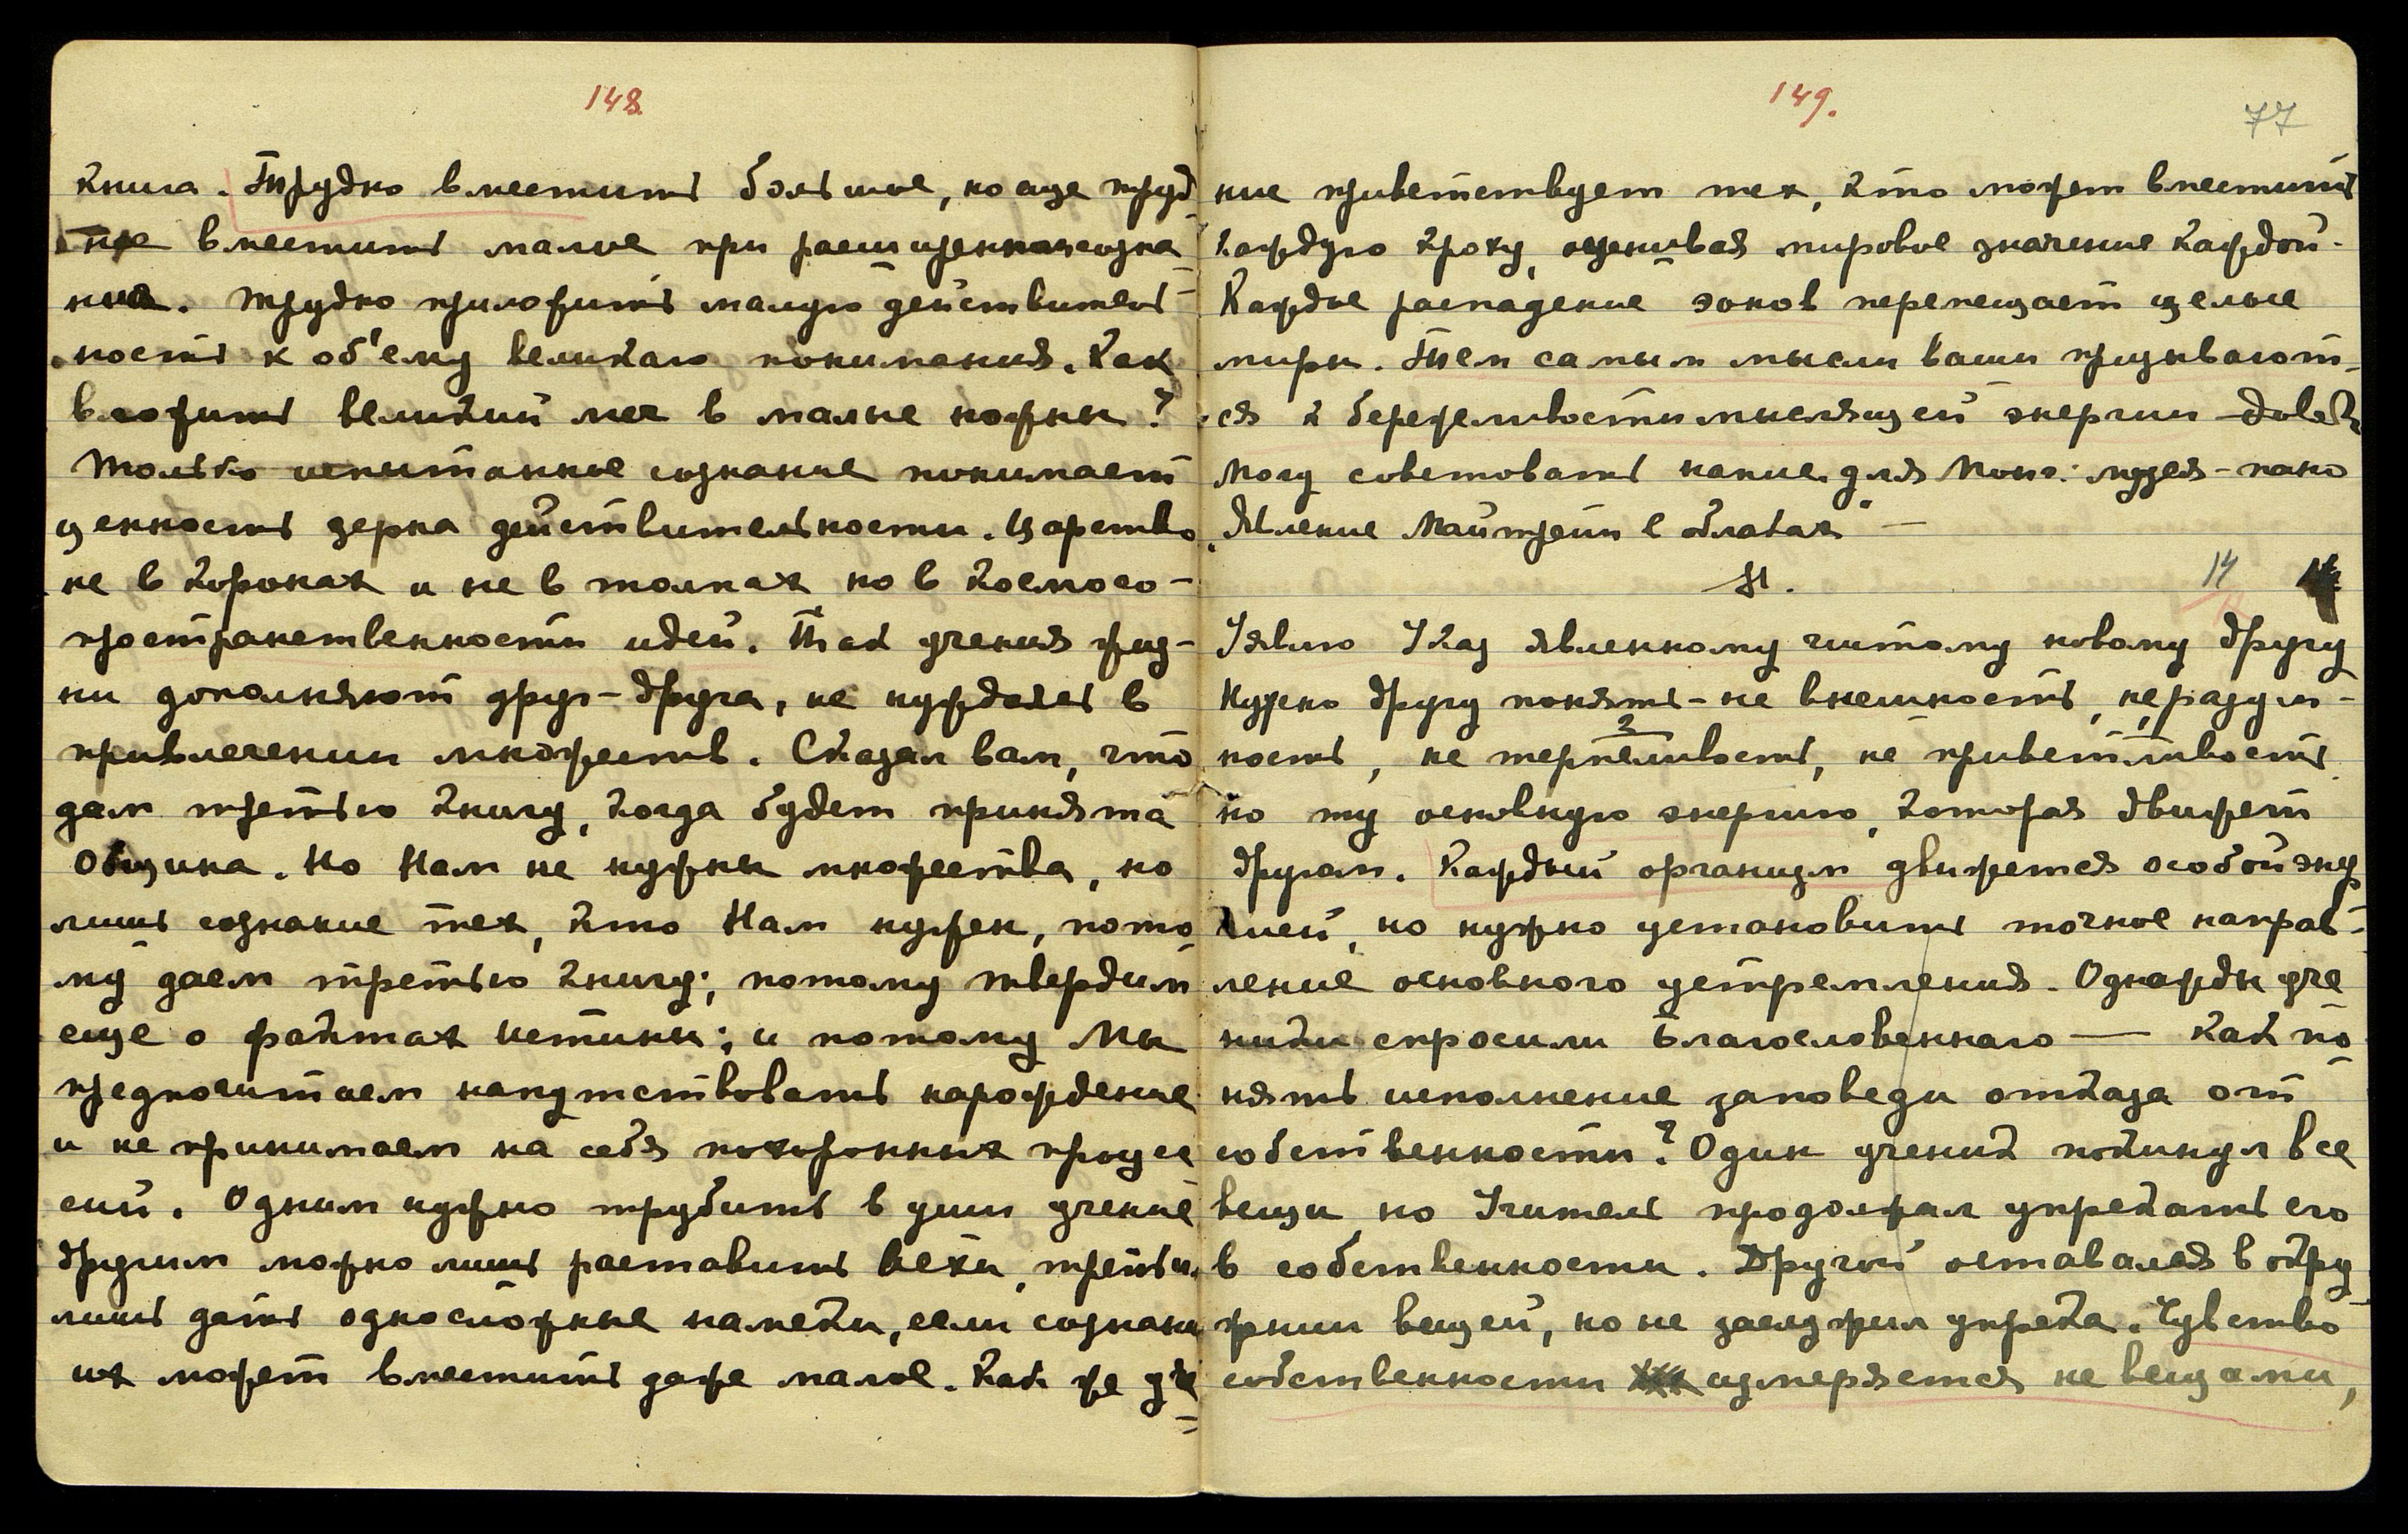 148.
книга. Трудно вместить большое, но еще труд
нее вместить малое при расширенном созна
нии. Трудно приложить малую действитель-
ность к об'ему великаго понимания. Как
вложить великий меч в малые ножны?
Только испытанное сознание понимает
ценность зерна действительности. Царство
не в коронах и не в толпах но в космосо-
пространственности идей. Так учения жиз-
ни дополняют друг-друга, не нуждаясь в
привлечении множеств. Сказал вам, что
дам третью книгу, когда будет принята
Община. Но Нам не нужны множества, но
лишь сознание тех, кто Нам нужен, пото
му даем третью книгу; потому твердим
еще о фактах истины; и потому Мы
предпочитаем напутствовать нарождение
и не принимаем на себя похоронных процес
сий. Одним нужно трубить в уши учение
другим можно лишь раставить вехи, третьим
лишь дать односложные намеки, если сознание
их может вместить даже малое. Как же уче
149.
77
ние приветствует тех, кто может вместить
каждую кроху, оценивая мировое значение каждой.
Каждое распадение эонов перемещает целые
миры. Тем самым мысли ваши призывают-
ся к бережливости мыслящей энергии – довольно
Могу советовать ... для Монг: музея – пано
„Явление Майтрейи в облаках" —
14
Уявлю Указ явленному чистому новому другу
Нужно другу понять – не внешность, не разум-
ность, не терпеливость, не приветливость
но ту основную энергию, которая движет
другом. Каждый организм движется особой энер
гией, но нужно установить точное направ-
ление основного устремления. Однажды уче
ники спросили Благословеннаго — как по
нять исполнение заповеди отказа от
собственности? Один ученик покинул все
вещи но Учитель продолжал упрекать его
в собственности. Другой оставался в окру
жении вещей, но не заслужил упрека. Чувство
собственности измеряется не вещами,